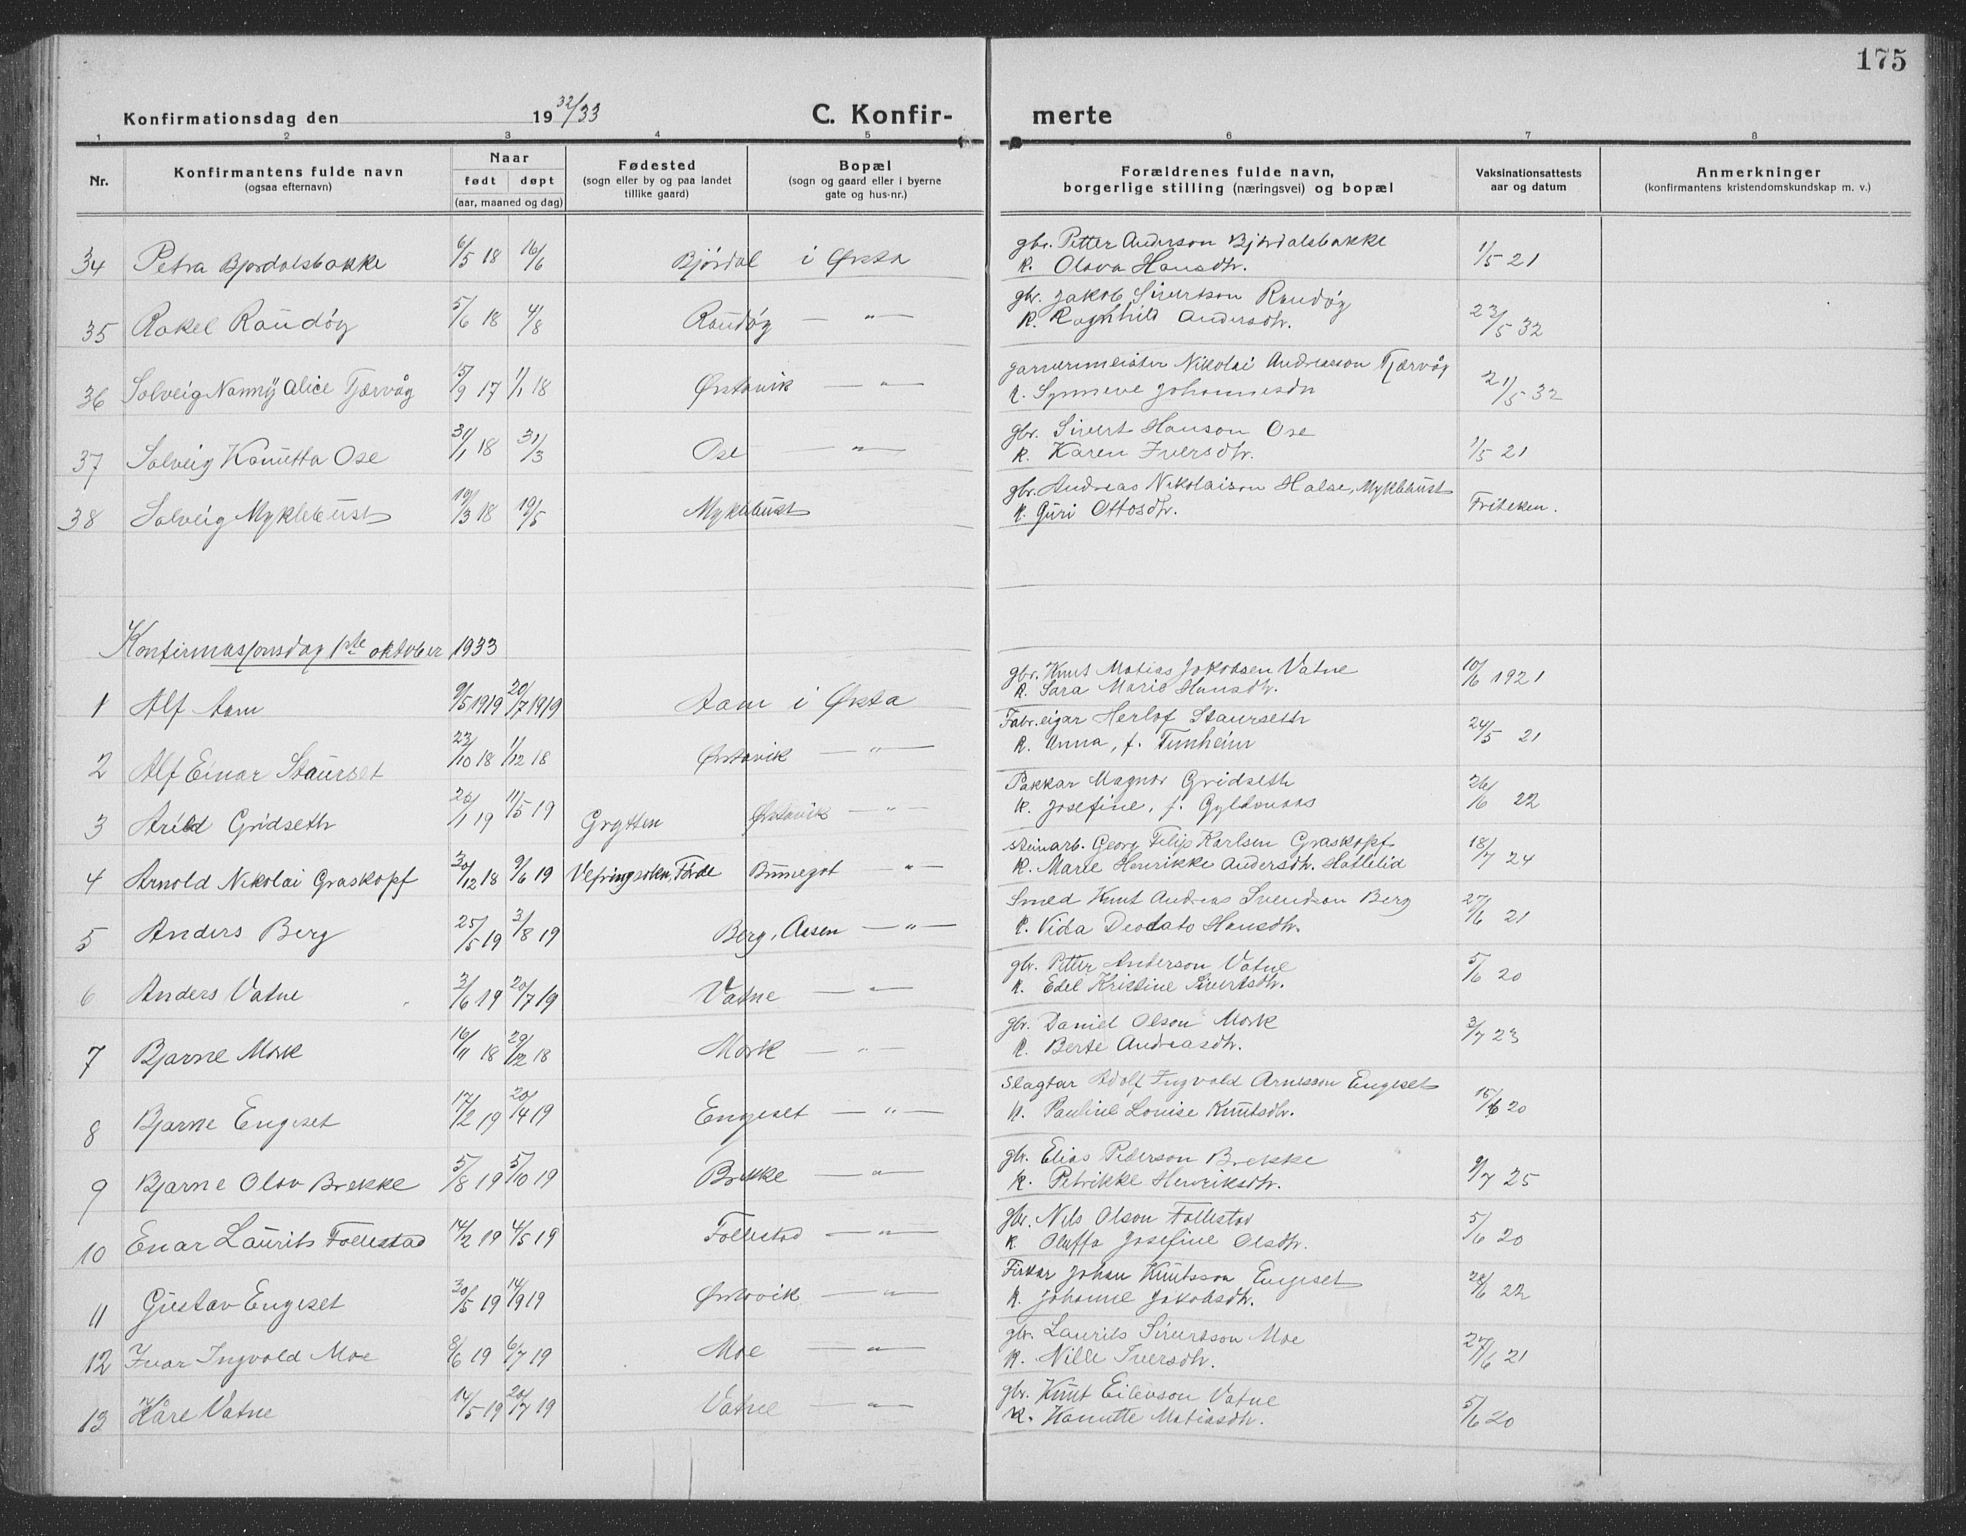 175
Konfirmationsdag den 19 32/33 C. Konfir- merte
1 2 3 4 5 6 7 8
Nr. Konfirmantens fulde navn (ogsaa efternavn) Naar født døpt (aar, maaned og dag) Fødested (sogn eller by og paa landet tillike gaard) Bopæl (sogn og gaard eller i byerne gate og hus-nr.) Forældrenes fulde navn, borgerlige stilling (næringsvei) og bopæl Vaksinationsattests aar og datum Anmerkninger (konfirmantens kristendomskundskap m. v.)
34 Petra Bjørdalsbakke 6/5 18 16/6 Bjørdal i Ørsta gbr. Petter Anderson Bjørdalsbakke K. Olava Hansdtr. 1/5 21
35 Rakel Raudøy 5/6 18 4/8 Raudøy — " — gbr. Jakob Sivertson Raudøy K. Ragnhild Andersdtr. 23/5 32
36 Solveig Nanny Alice Tjærvåg 5/9 17 1/1 18 Ørstavik — " — garvermeister Nikolai Andreasson Tjærvåg K. Synneve Johannesdtr 21/5 32
37 Solveig Kanutta Ose 31/1 18 31/3 Ose — " — gbr. Sivert Hanson Ose K. Karen Iversdtr. 1/5 21
38 Solveig Myklebust 19/3 18 19/5 Myklebust gbr. Andreas Nikolaison Halse, Myklebust K. Guri Ottosdtr. Friteken.
Konfirmasjonsdag 1ste oktober 1933
1 Alf Aam 9/5 1919 20/7 1919 Aam i Ørsta gbr. Knut Matias Jakobsen Vatne K. Sara Marie Hansdtr. 10/6 1921
2 Alf Einar Staurset 23/10 18 1/12 18 Ørstavik — " — Fabr.eigar Herlof Staurseth K. Anna, f. Tunheim 24/5 21
3 Arild Gridseth 20/1 19 11/5 19 Grytten Ørstavik — " — Pakkar Magnor Gridseth K. Josefine, f. Gyldvnaas 26/6 22
4 Arnold Nikolai Graskopf 30/12 18 9/6 19 Vefringsokn, Førde Bunegot — " — steinarb. Georg Filip Karlsen Graskopf K. Marie Henrikke Andersdtr. Hatlelid 18/7 24
5 Anders Berg 25/5 19 3/8 19 Berg, Aasen — " — Smed Knut Andreas Svendson Berg K. Vida Deodata Hansdtr. 27/6 21
6 Anders Vatne 3/6 19 20/7 19 Vatne — " — gbr. Petter Anderson Vatne K. Edel Kristine Sivertsdtr. 5/6 20
7 Bjarne Mork 16/11 18 29/12 18 Mork — " — gbr. Daniel Olson Mork K. Berte Andreasdtr. 3/7 23
8 Bjarne Engeset 17/2 19 20/4 19 Engeset — " — Slagtar Adolf Ingvald Arnesson Engeset K. Pauline Lovise Knutsdtr. 15/6 20
9 Bjarne Olav Brekke 5/8 19 5/10 19 Brekke — " — gbr. Elias Pederson Brekke K. Petrikke Henriksdtr. 9/7 25
10 Enar Laurits Follestad 14/2 19 4/5 19 Follestad — " — gbr. Nils Olson Follestad K Oluffa Josefine Olsdtr. 5/6 20
11 Gustav Engeset 30/5 19 14/9 19 Ørstavik — " — Fiskar Johan Knutsson Engeset K. Johanne Jakobsdtr. 28/6 22
12 Ivar Ingvald Moe 8/6 19 6/7 19 Moe — " — gbr. Laurits Sivertsson Moe K. Nille Iversdtr. 27/6 21
13 Kåre Vatne 14/5 19 20/7 19 Vatne — " — gbr. Knut Eilevson Vatne K. Hanutte Matiasdtr. 5/6 20